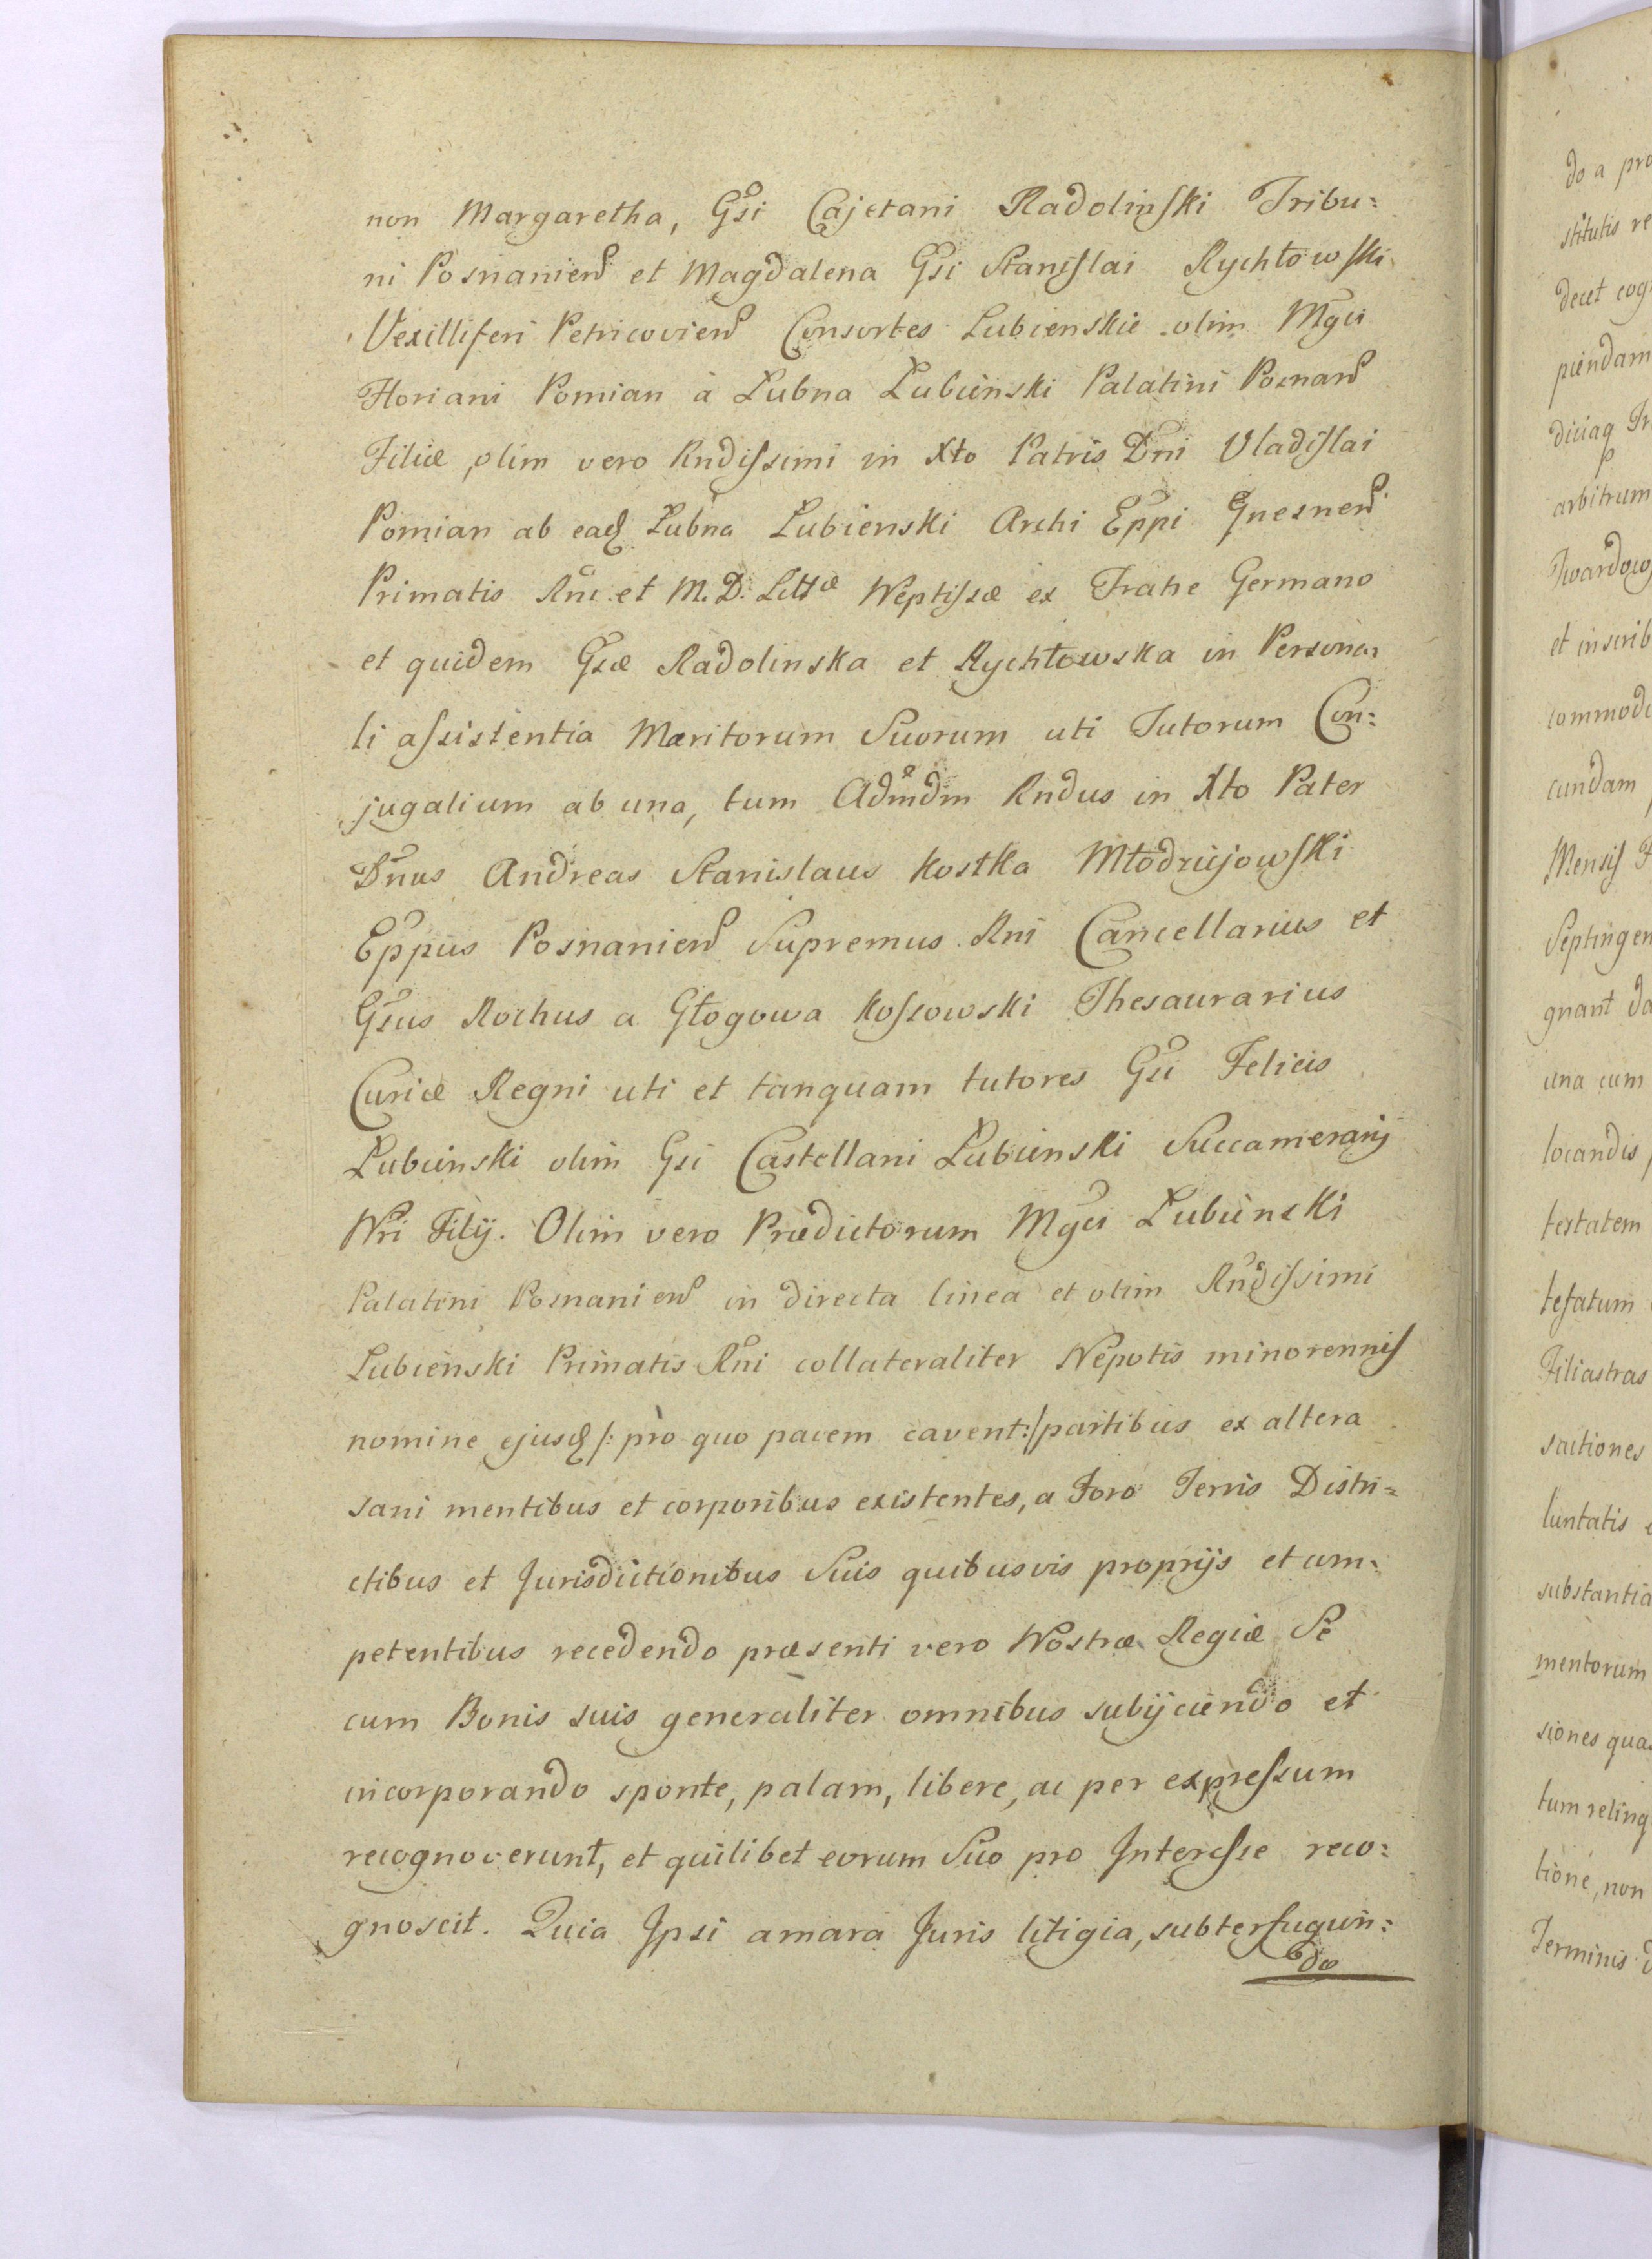 non Margaretha, Gsi Cajetani Radolinski Tribu:
ni Posnanien et Magdalena Gsi Stanislai Rychłowski
Vexilliferi Petricovien Consortes Lubienskie olim Mgci
Floriani Pomian à Łubna Łubienski Palatini Poznan
Filiæ, olim vero Rndissimi in Xto Patris Dni Vladislai
Pomian ab eadq Łubna Łubienski Archi Eppi Gnesnen
Primatis Rni et M. D. Littæ Neptissæ ex Fratre Germano
et quidem Gsæ Radolinska et Rychłowska in Persona:
li assistentia Maritorum Suorum uti Tutorum Con:
jugalium ab una, tum Admdm Rndus in Xto Pater
Dnus Andreas Stanislaus Kostka Młodziejowski
Eppus Posnanien Supremus Rni Cancellarius et
Gsus Rochus a Głogowa Kossowski Thesaurarius
Curiæ Regni uti et tanquam tutores Gsi Felicis
Łubienski olim Gsi Castellani Łubienski Succamerarij
Nri Filij. Olim vero Prædictorum Mgci Łubienski
Palatini Poznanien in directa linea et olim Rndissimi
Lubienski Primatis Rni collateraliter Nepotis minorennis
nomine ejusdq /: pro quo pacem cavent :/ partibus ex altera
sani mentibus et corporibus existentes, a Foro Terris Distri=
ctibus et Jurisdictionibus Suis quibusvis proprijs et com:
petentibus recedendo præsenti vero Nostræ Regiæ Se
cum Bonis suis generaliter omnibus subijciendo et
incorporando sponte, palam, libere, ac per expressum
recognoverunt, et quilibet eorum Suo pro Interesse reco:
gnoscit. Quia Ipsi amara Juris litigia, subterfugien:
do
do a pro
stitutis re
decet cog
piendam
arbitrum
Twardow
et inscrib
commodo
cundam
Mensis
Septingen
gnant da
una cum
locandis
testatem
Filiastras
luntatis
substantia
mentorum
siones quas
tum relinq
tione, non
Terminis